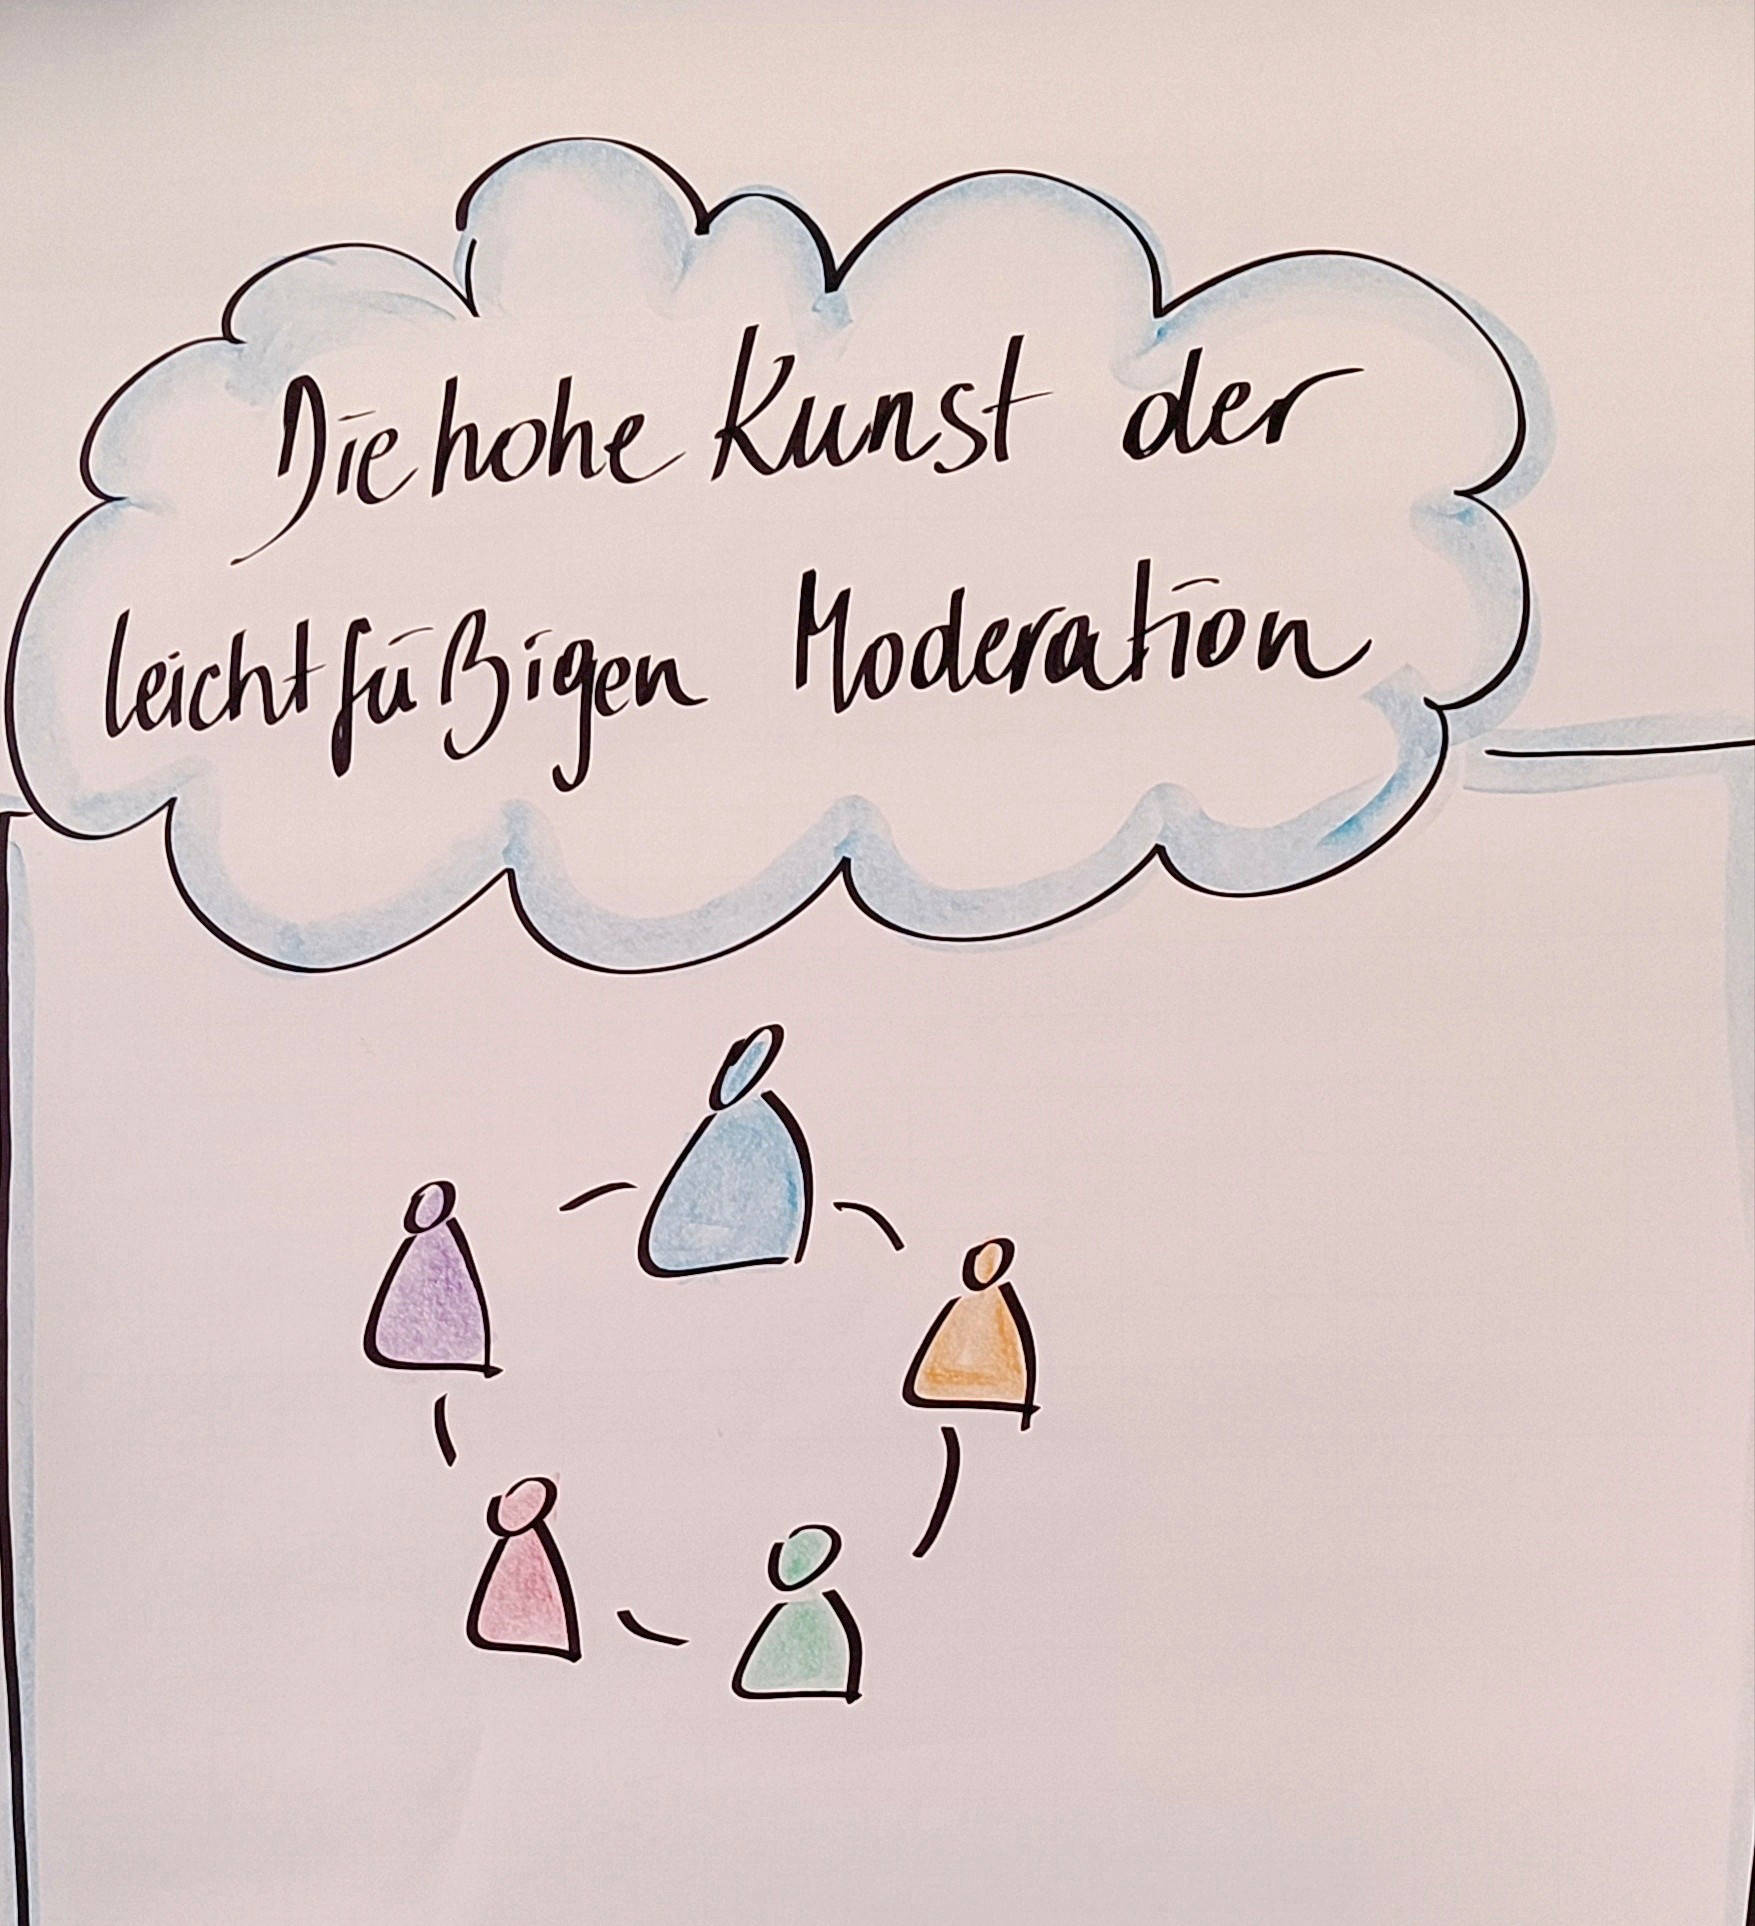 Die hohe Kunst der
leichtfüßigen Moderation